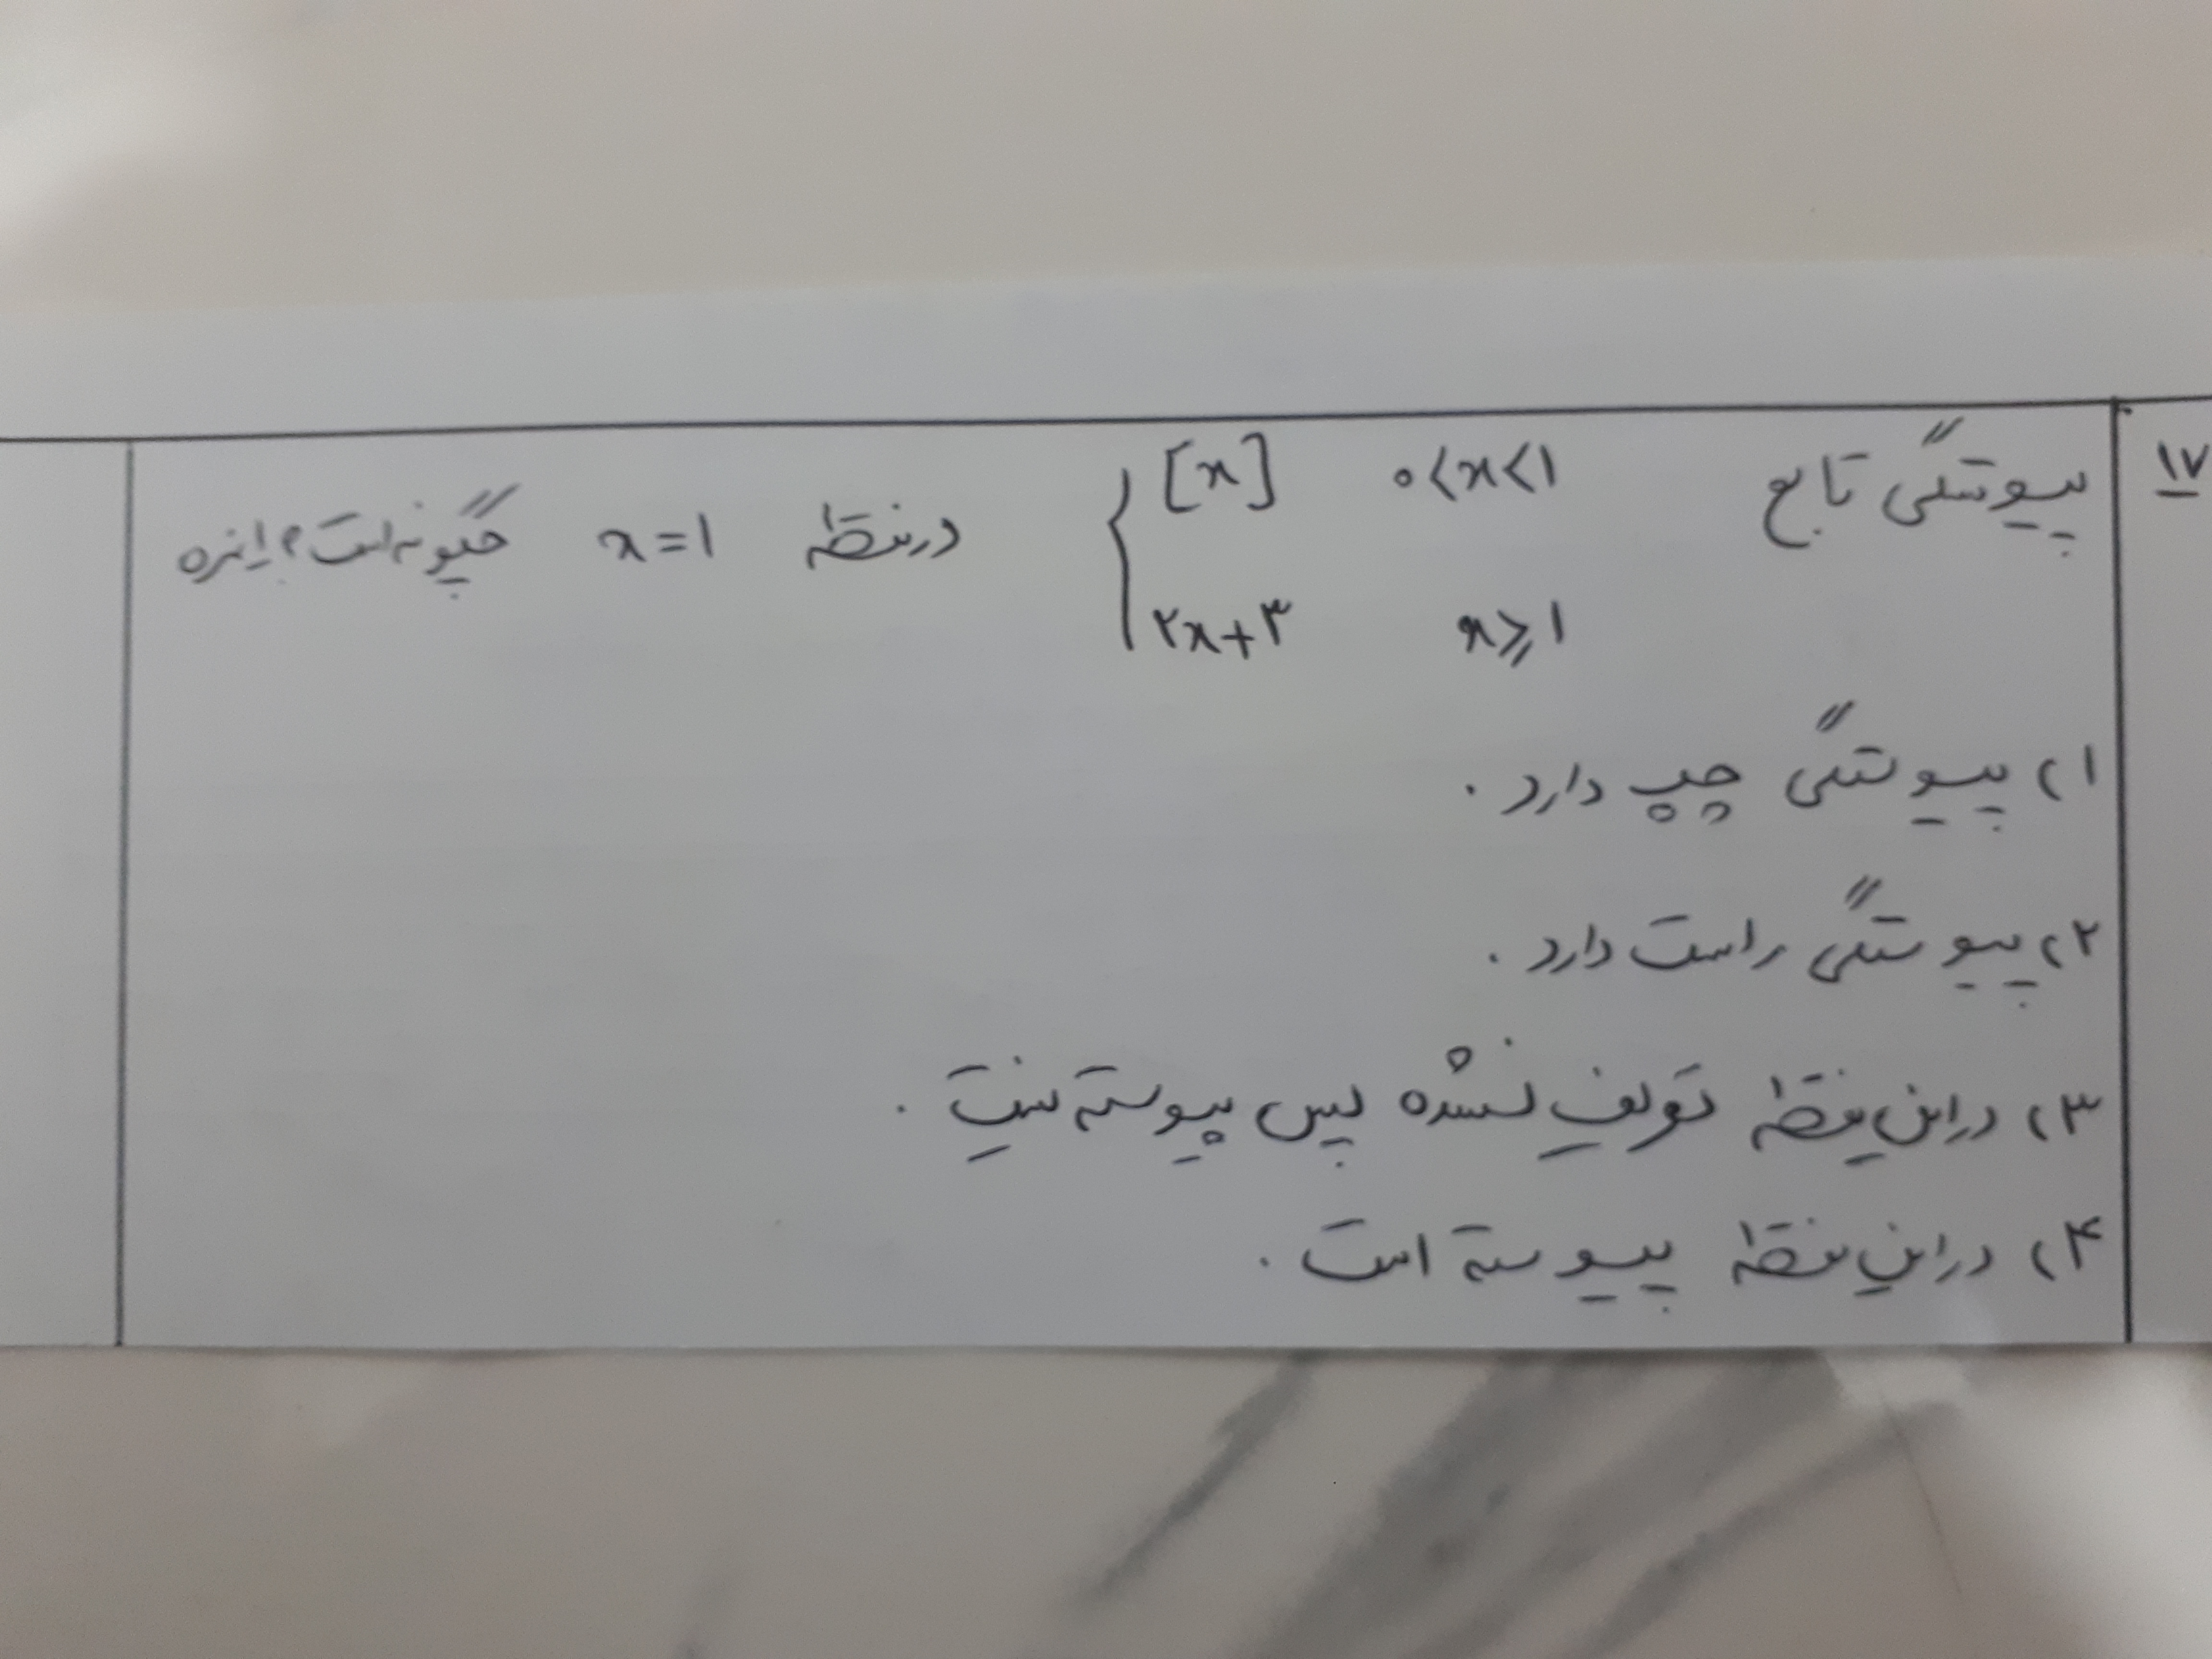 ۱۷ پیوستگی تابع { [x] ۰<x<۱ در نقطهٔ x=۱ چگونه است؟ ۱نمره
۲x+۳ x≥۱
۱) پیوستگی چپ دارد.
۲) پیوستگی راست دارد.
۳) در این نقطهٔ تعریف نشده پس پیوسته نیست.
۴) در این نقطهٔ پیوسته است.